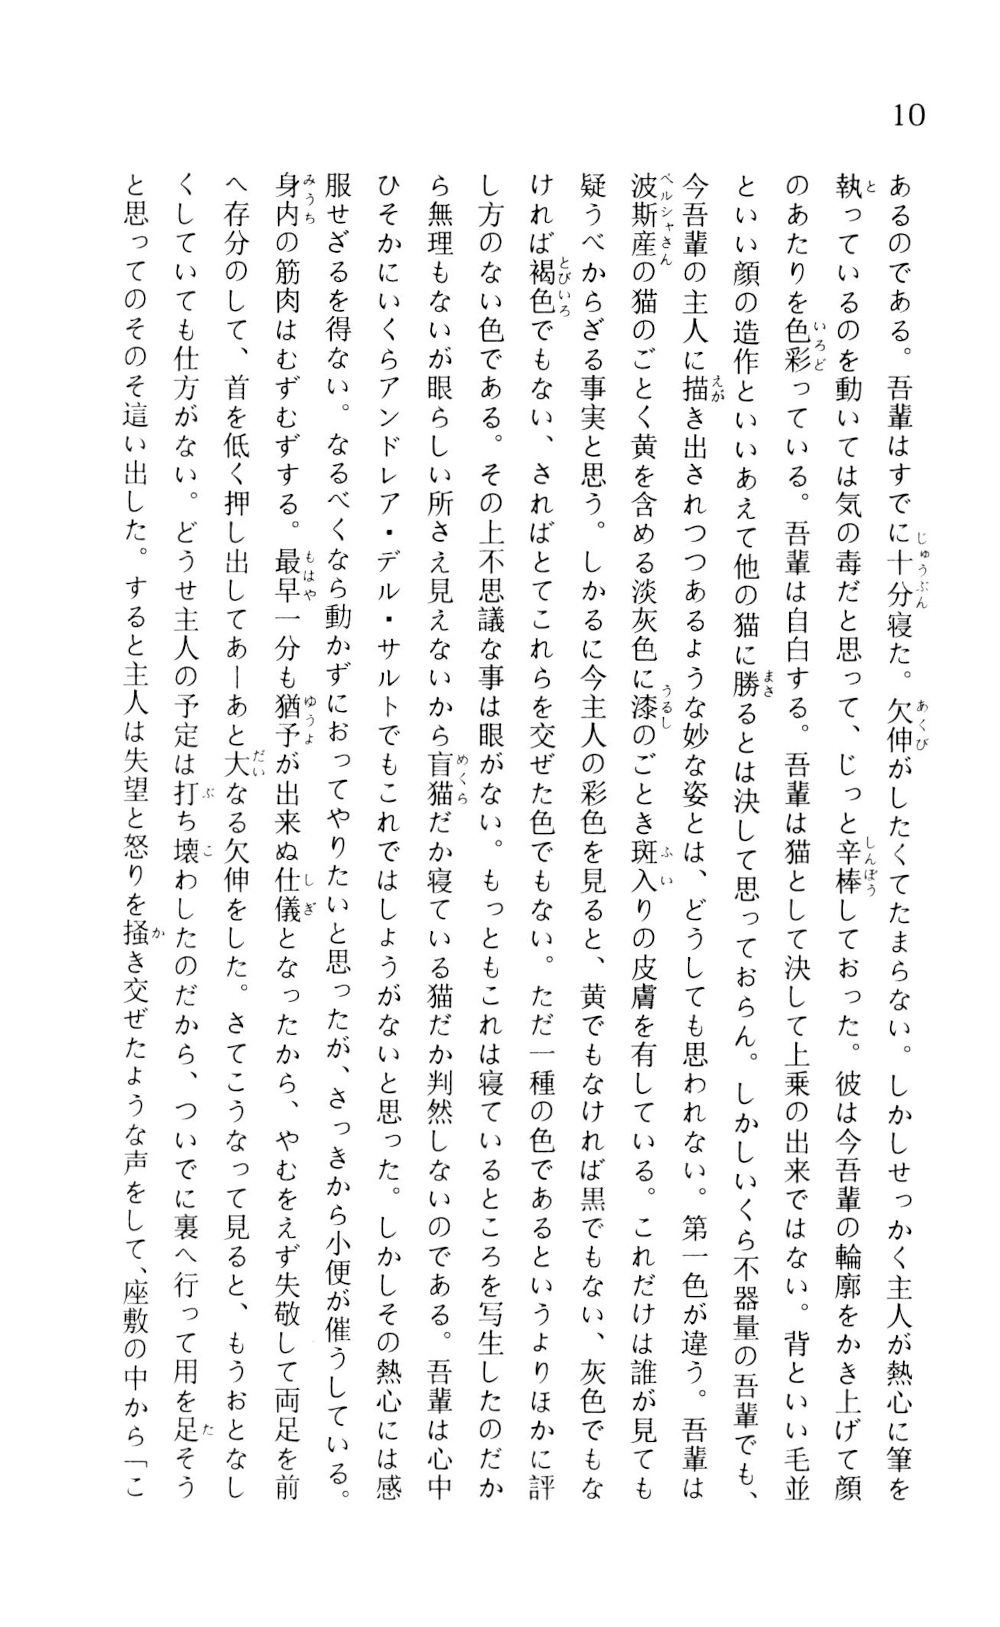 10
あるのである。吾輩はすでに十分寝た。欠伸がしたくてたまらない。しかしせっかく主人が熱心に筆を
執っているのを動いては気の毒だと思って、じっと辛棒しておった。彼は今吾輩の輪廓をかき上げて顔
のあたりを色彩っている。吾輩は自白する。吾輩は猫として決して上乗の出来ではない。背といい毛並
といい顔の造作といいあえて他の猫に勝るとは決して思っておらん。しかしいくら不器量の吾輩でも、
今吾輩の主人に描き出されつつあるような妙な姿とは、どうしても思われない。第一色が違う。吾輩は
波斯産の猫のごとく黄を含める淡灰色に漆のごとき斑入りの皮膚を有している。これだけは誰が見ても
疑うべからざる事実と思う。しかるに今主人の彩色を見ると、黄でもなければ黒でもない、灰色でもな
ければ褐色でもない、さればとてこれらを交ぜた色でもない。ただ一種の色であるというよりほかに評
し方のない色である。その上不思議な事は眼がない。もっともこれは寝ているところを写生したのだか
ら無理もないが眼らしい所さえ見えないから盲猫だか寝ている猫だか判然しないのである。吾輩は心中
ひそかにいくらアンドレア・デル・サルトでもこれではしようがないと思った。しかしその熱心には感
服せざるを得ない。なるべくなら動かずにおってやりたいと思ったが、さっきから小便が催うしている。
身内の筋肉はむずむずする。最早一分も猶予が出来ぬ仕儀となったから、やむをえず失敬して両足を前
へ存分のして、首を低く押し出してあーあと大なる欠伸をした。さてこうなって見ると、もうおとなし
くしていても仕方がない。どうせ主人の予定は打ち壊わしたのだから、ついでに裏へ行って用を足そう
と思ってのそのそ這い出した。すると主人は失望と怒りを掻き交ぜたような声をして、座敷の中から「こ